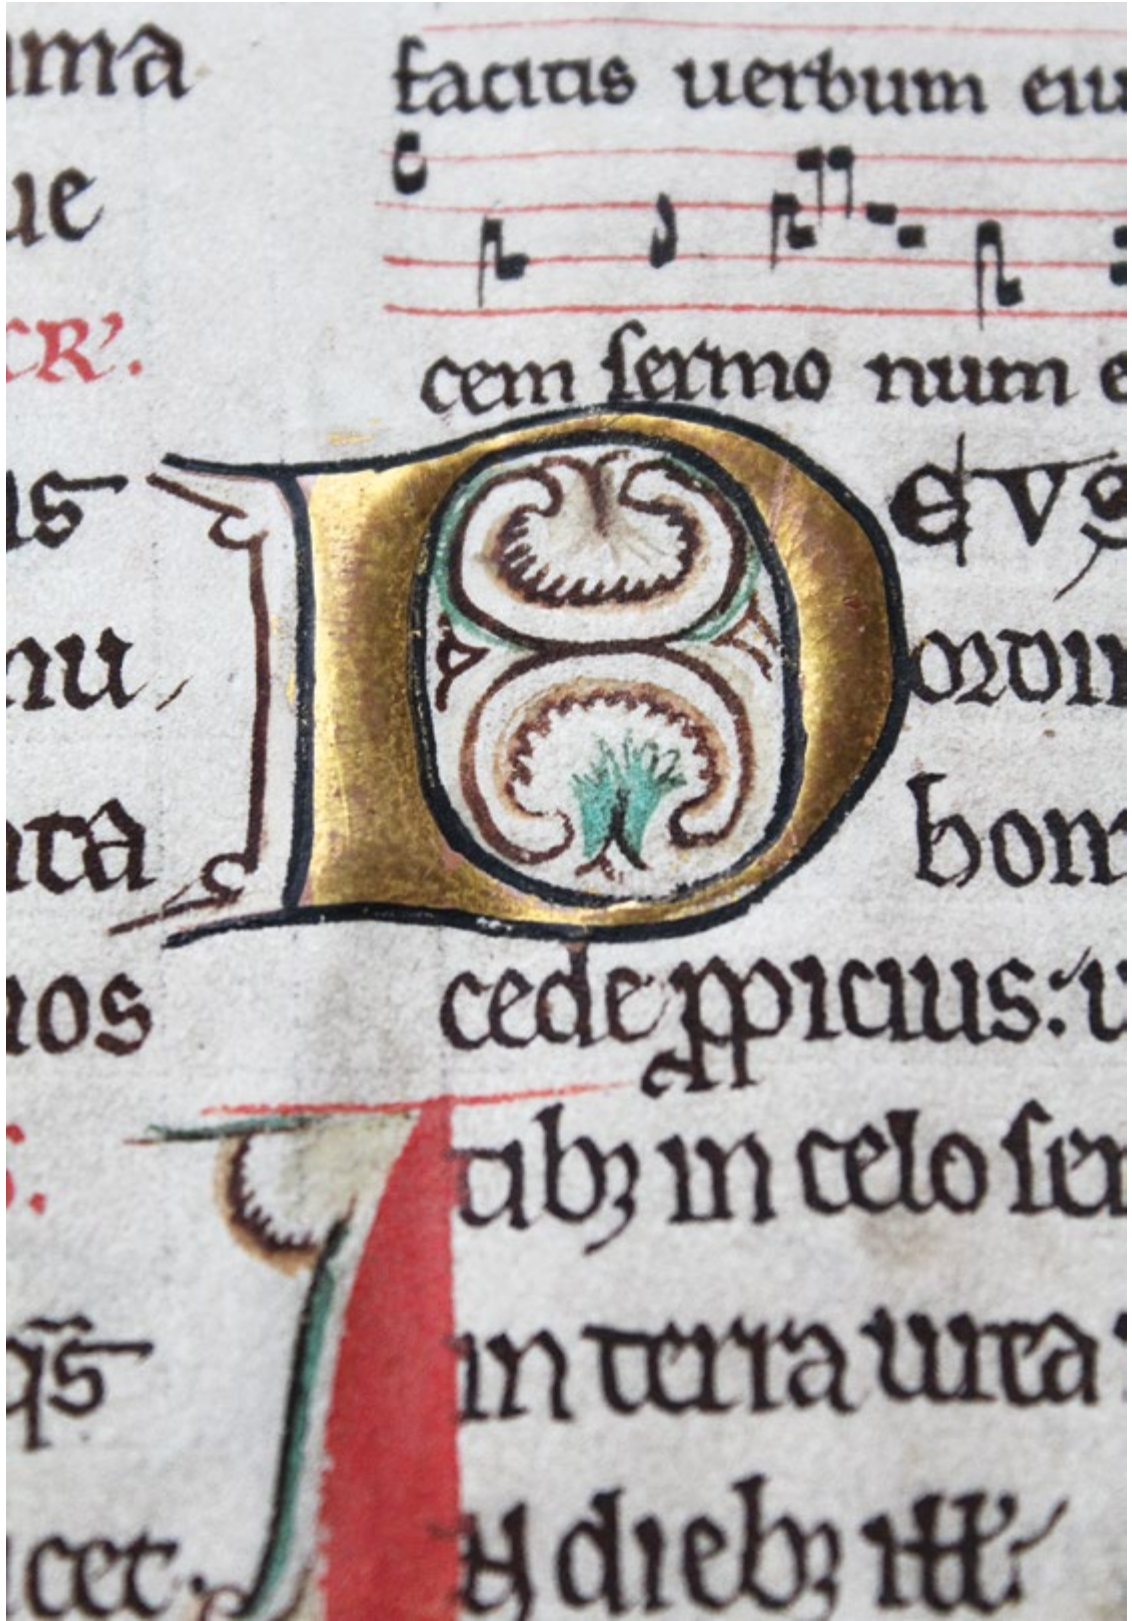 ima
ue
CR'.
us
nu
ata
nos
S.
qs̄
cet.
facitis uerbum eiu
cem sermo num e
DEVS
ordin
hom
cede ꝓpicius: u
tibꝫ in celo ser
in terra uita
IN diebꝫ ill'